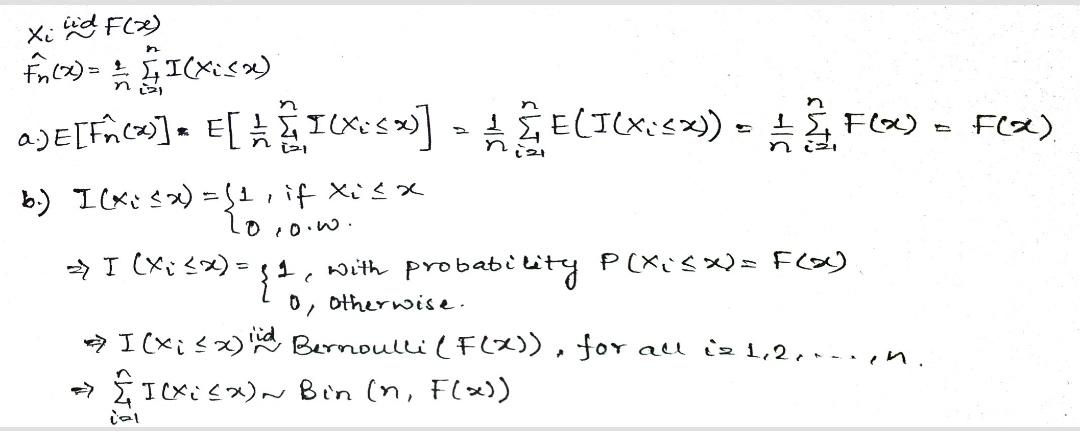 Xi iid~ F(x)
F̂n(x) = 1/n Σ_{i=1}^{n} I(Xi ≤ x)
a.) E[F̂n(x)] = E[1/n Σ_{i=1}^{n} I(Xi ≤ x)] = 1/n Σ_{i=1}^{n} E(I(Xi ≤ x)) = 1/n Σ_{i=1}^{n} F(x) = F(x).
b.) I(Xi ≤ x) = { 1, if Xi ≤ x
0, o.w.
⇒ I(Xi ≤ x) = { 1, with probability P(Xi ≤ x) = F(x).
0, otherwise.
⇒ I(Xi ≤ x) iid~ Bernoulli(F(x)), for all i = 1, 2, ...., n.
⇒ Σ_{i=1}^{n} I(Xi ≤ x) ~ Bin(n, F(x))